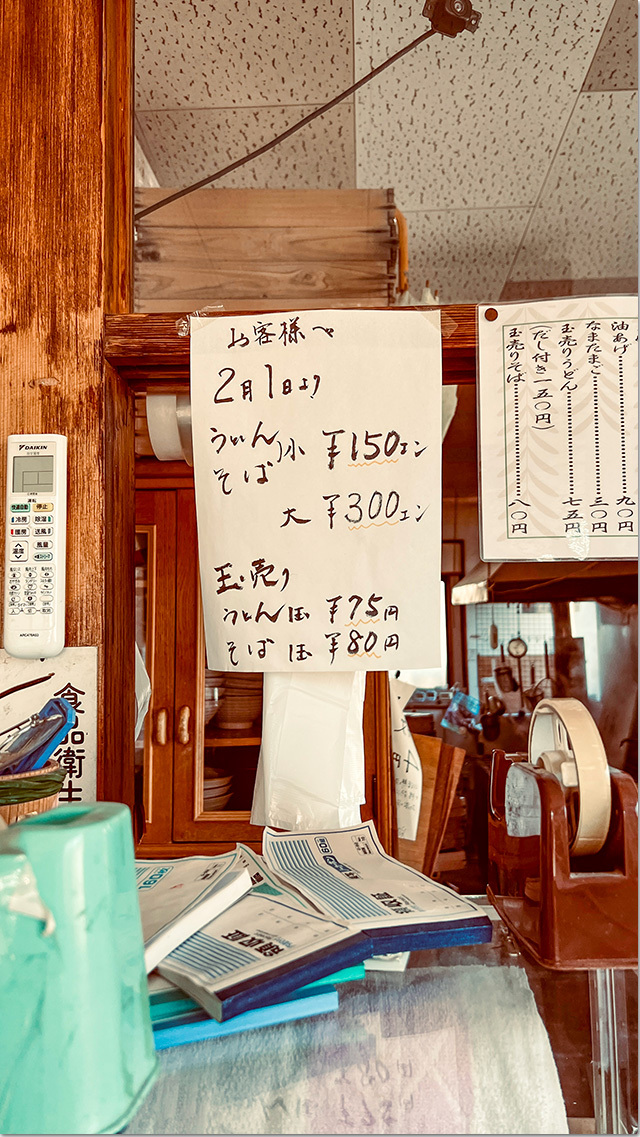 お客様へ
2月1日より
うどん
そば
小 ¥150エン
大 ¥300エン
玉売り
うどん1玉 ¥75円
そば 1玉 ¥80円
油あげ 九〇円
なまたまご 三〇円
玉売りうどん 七五円
(だし付き一五〇円)
玉売りそば 八〇円
DAIKIN
運転
快適自動
停止
冷房
除湿
暖房
送風
温度
風量
食品衛生
領収証
領収証